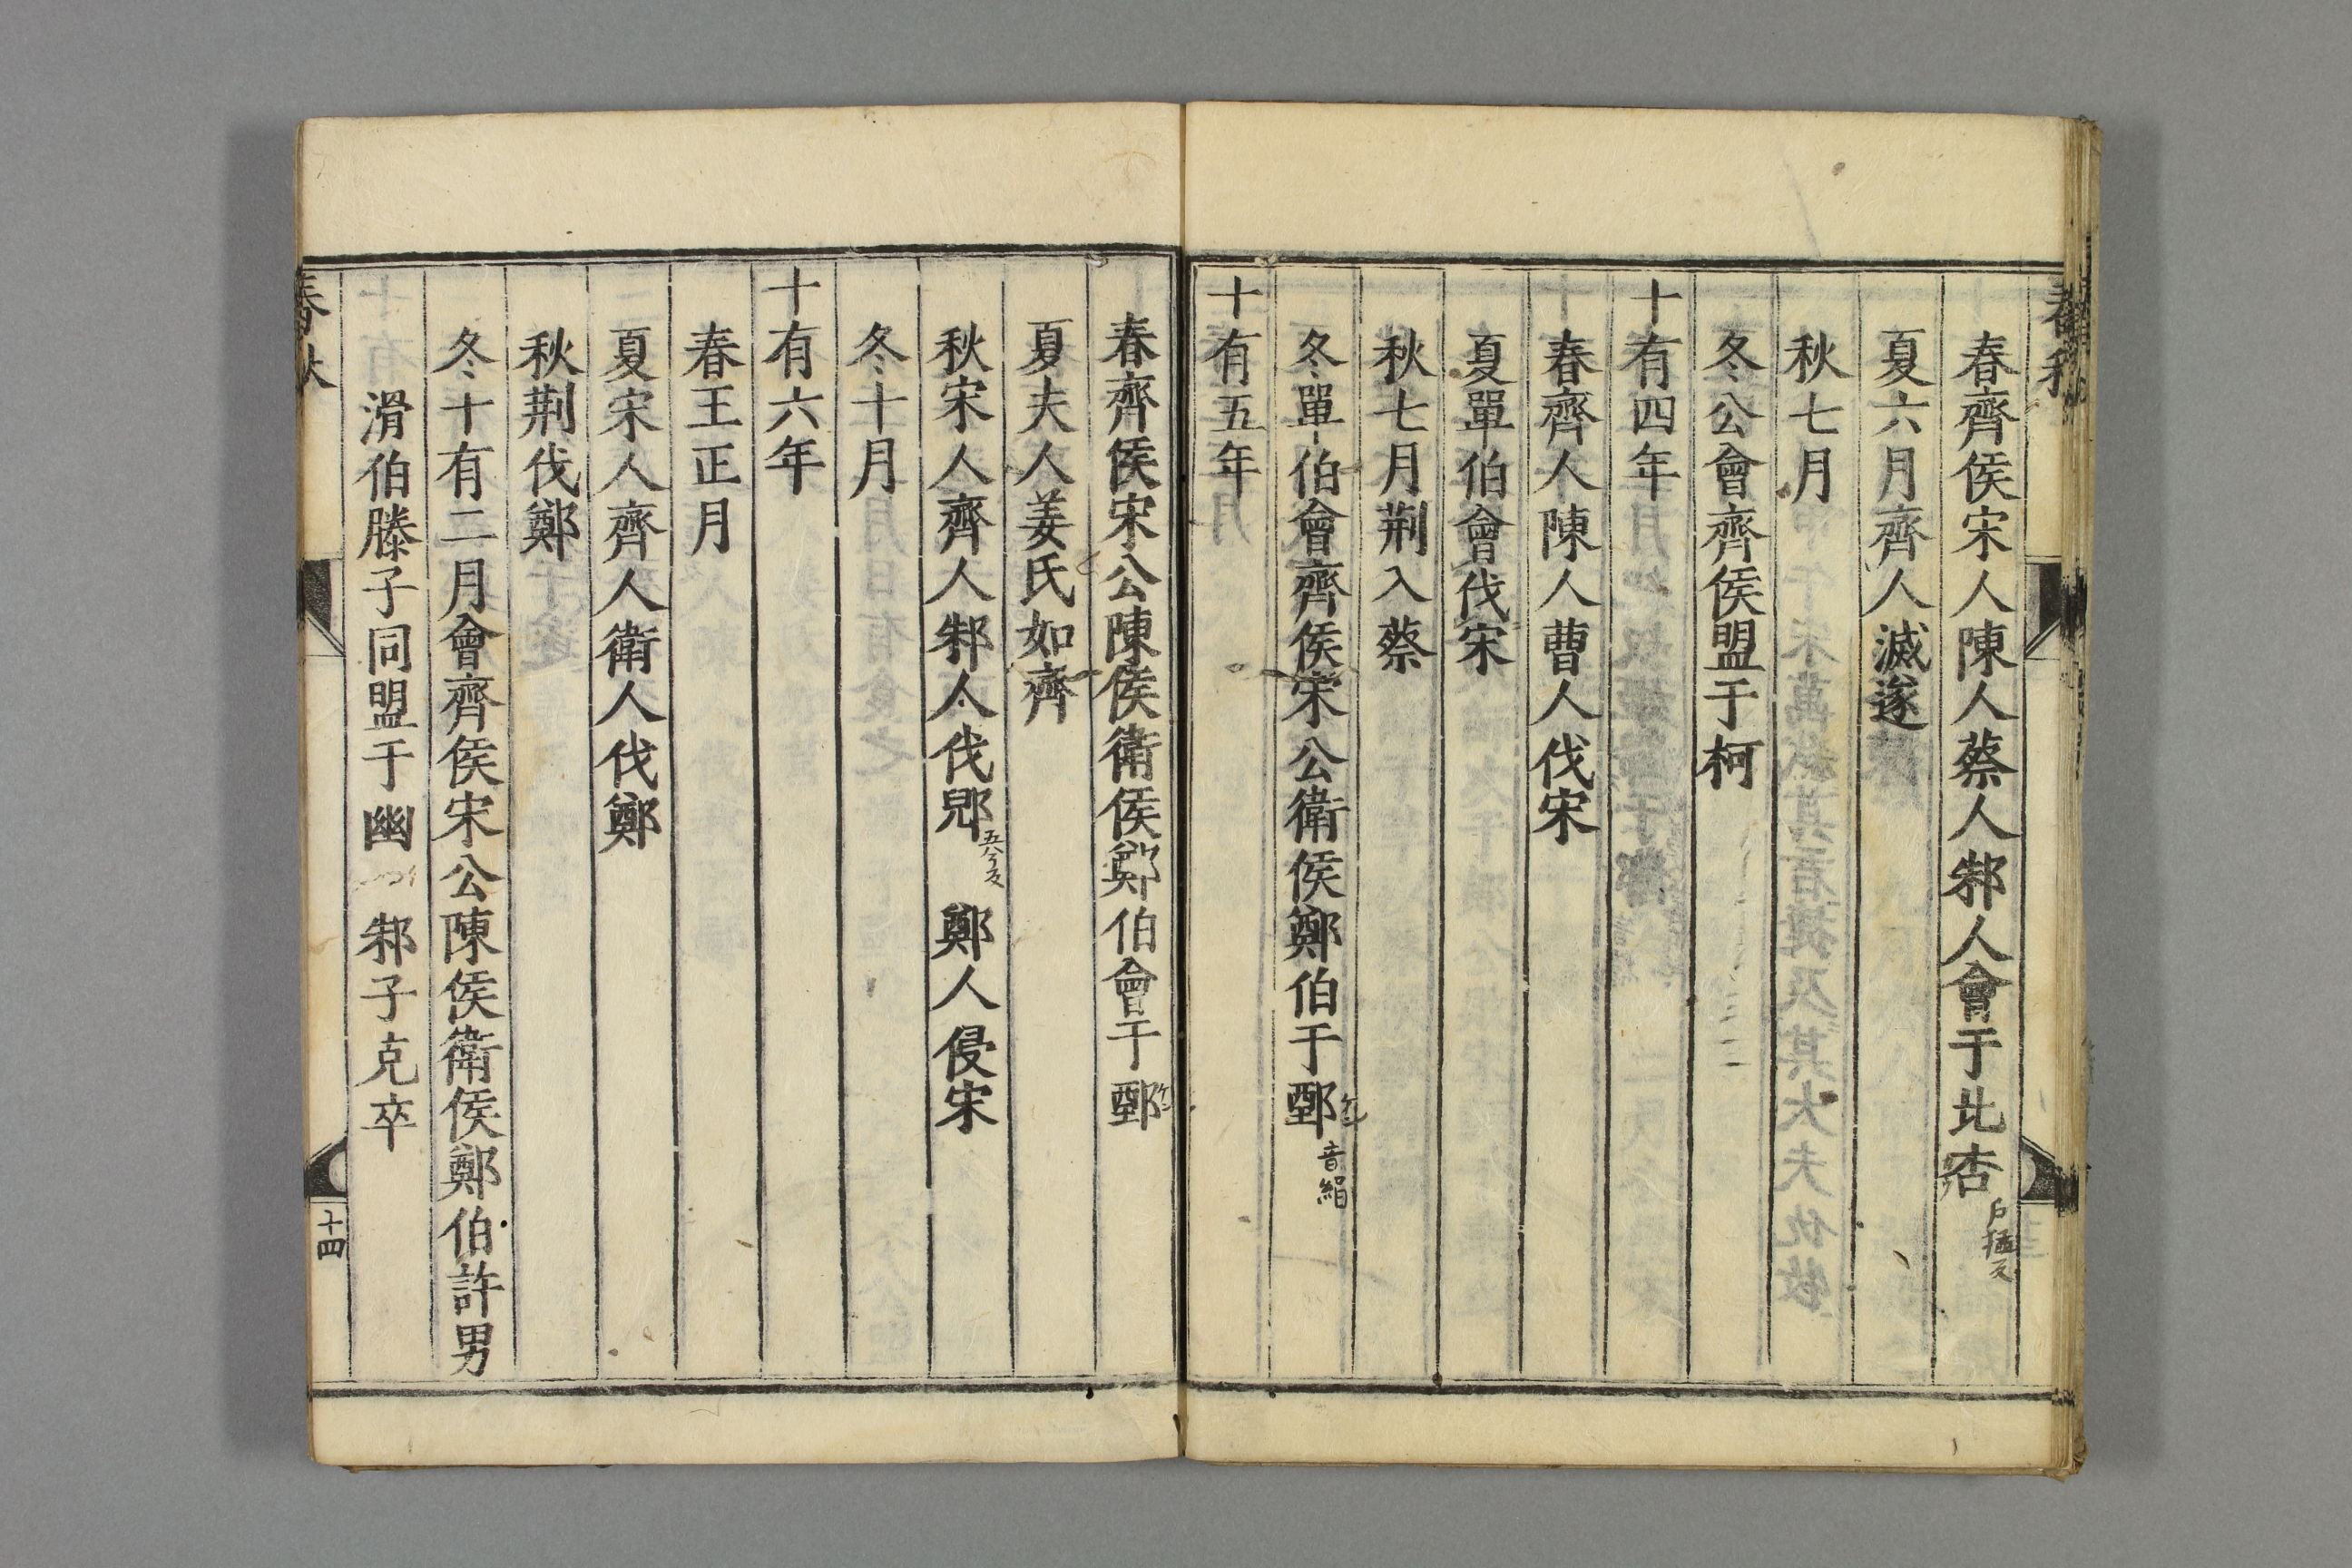 春秋
春齊侯宋人陳人蔡人邾人會于北杏戶猛反
夏六月齊人滅遂
秋七月
冬公會齊侯盟于柯
十有四年
春齊人陳人曹人伐宋
夏單伯會伐宋
秋七月荆入蔡
冬單伯會齊侯宋公衛侯鄭伯于鄄音絹
十有五年
春齊侯宋公陳侯衛侯鄭伯會于鄄
夏夫人姜氏如齊
秋宋人齊人邾人伐郳五兮反 鄭人侵宋
冬十月
十有六年
春王正月
夏宋人齊人衛人伐鄭
秋荆伐鄭
冬十有二月會齊侯宋公陳侯衛侯鄭伯許男
滑伯滕子同盟于幽 邾子克卒
春秋
十四